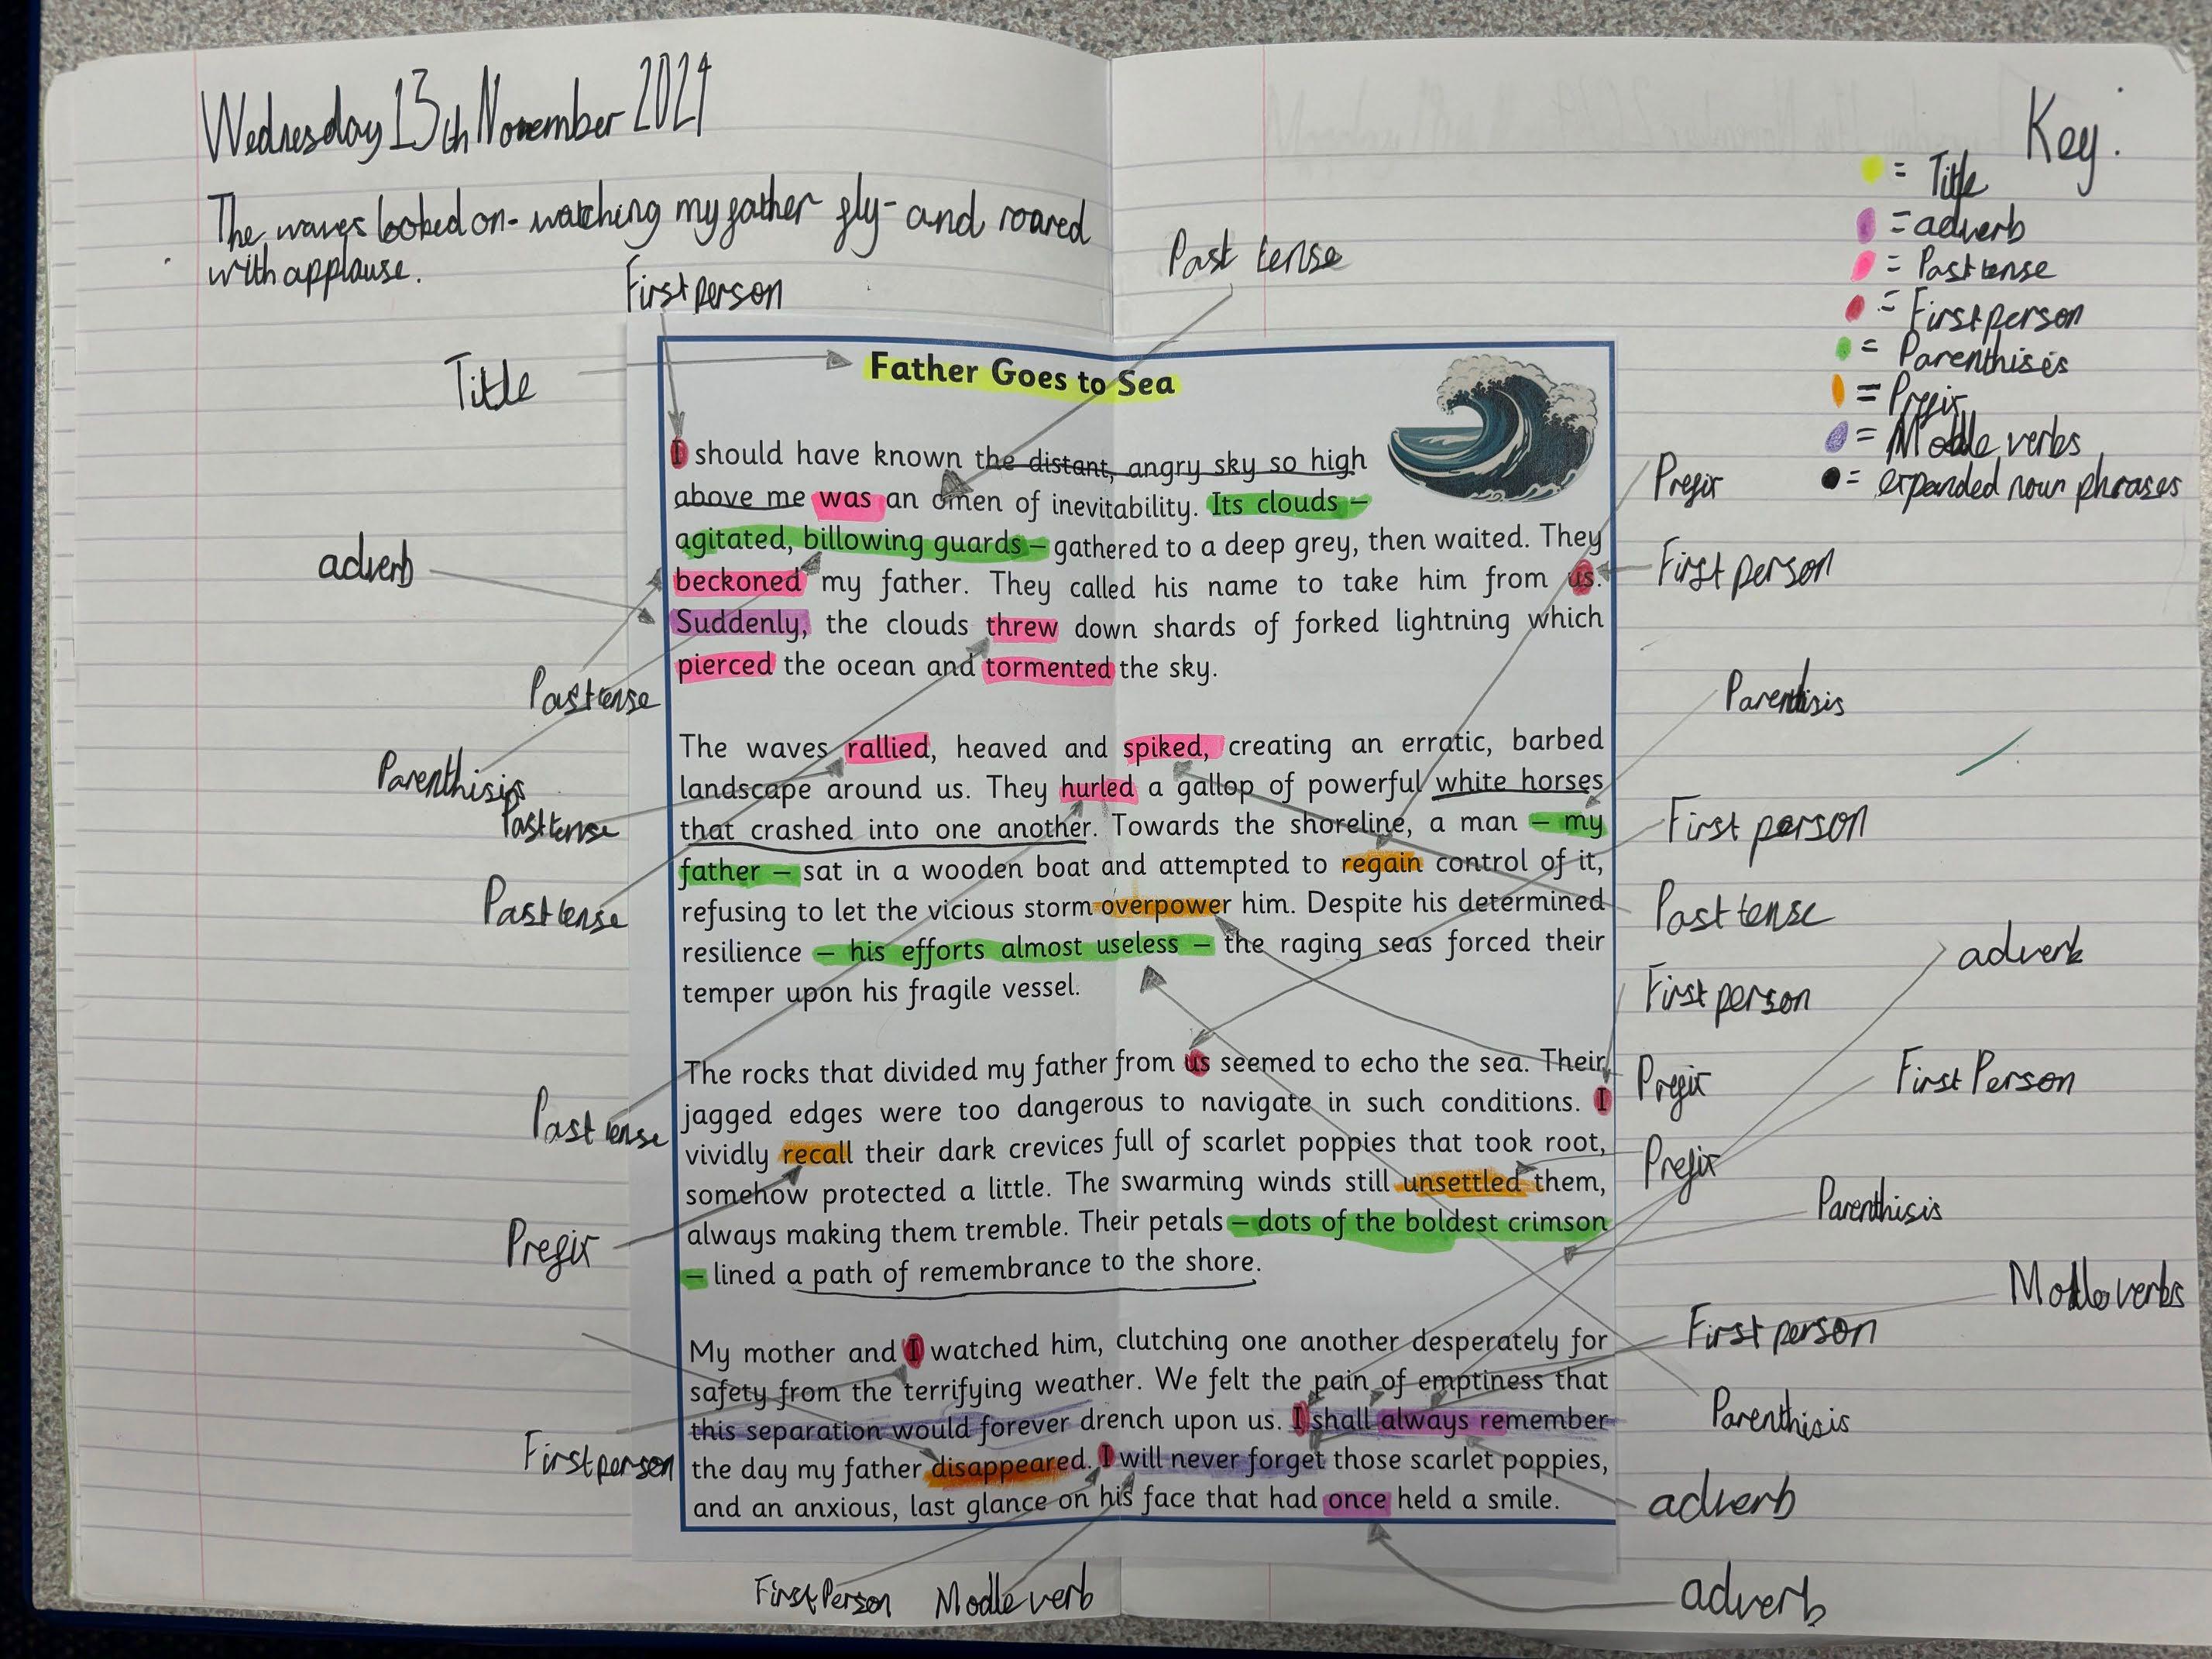 Wednesday 13th November 2024
The waves looked on - watching my father fly - and roared
with applause.
Key.
= Title
= adverb
= Past tense
= First person
= Parenthisis
= Prefix
= Modle verbs
= expanded noun phrases
First person
Past tense
Title
Father Goes to Sea
I should have known the distant, angry sky so high
above me was an omen of inevitability. Its clouds –
agitated, billowing guards – gathered to a deep grey, then waited. They
beckoned my father. They called his name to take him from us.
Suddenly, the clouds threw down shards of forked lightning which
pierced the ocean and tormented the sky.
The waves rallied, heaved and spiked, creating an erratic, barbed
landscape around us. They hurled a gallop of powerful white horses
that crashed into one another. Towards the shoreline, a man – my
father – sat in a wooden boat and attempted to regain control of it,
refusing to let the vicious storm overpower him. Despite his determined
resilience – his efforts almost useless – the raging seas forced their
temper upon his fragile vessel.
The rocks that divided my father from us seemed to echo the sea. Their
jagged edges were too dangerous to navigate in such conditions. I
vividly recall their dark crevices full of scarlet poppies that took root,
somehow protected a little. The swarming winds still unsettled them,
always making them tremble. Their petals – dots of the boldest crimson
– lined a path of remembrance to the shore.
My mother and I watched him, clutching one another desperately for
safety from the terrifying weather. We felt the pain of emptiness that
this separation would forever drench upon us. I shall always remember
the day my father disappeared. I will never forget those scarlet poppies,
and an anxious, last glance on his face that had once held a smile.
adverb
Past tense
Parenthisis
Past tense
Past tense
Past tense
Prefix
First person
First Person
Modle verb
Prefix
First person
Parenthisis
First person
Past tense
adverb
First person
Prefix
First Person
Prefix
Parenthisis
Modle verbs
First person
Parenthisis
adverb
adverb